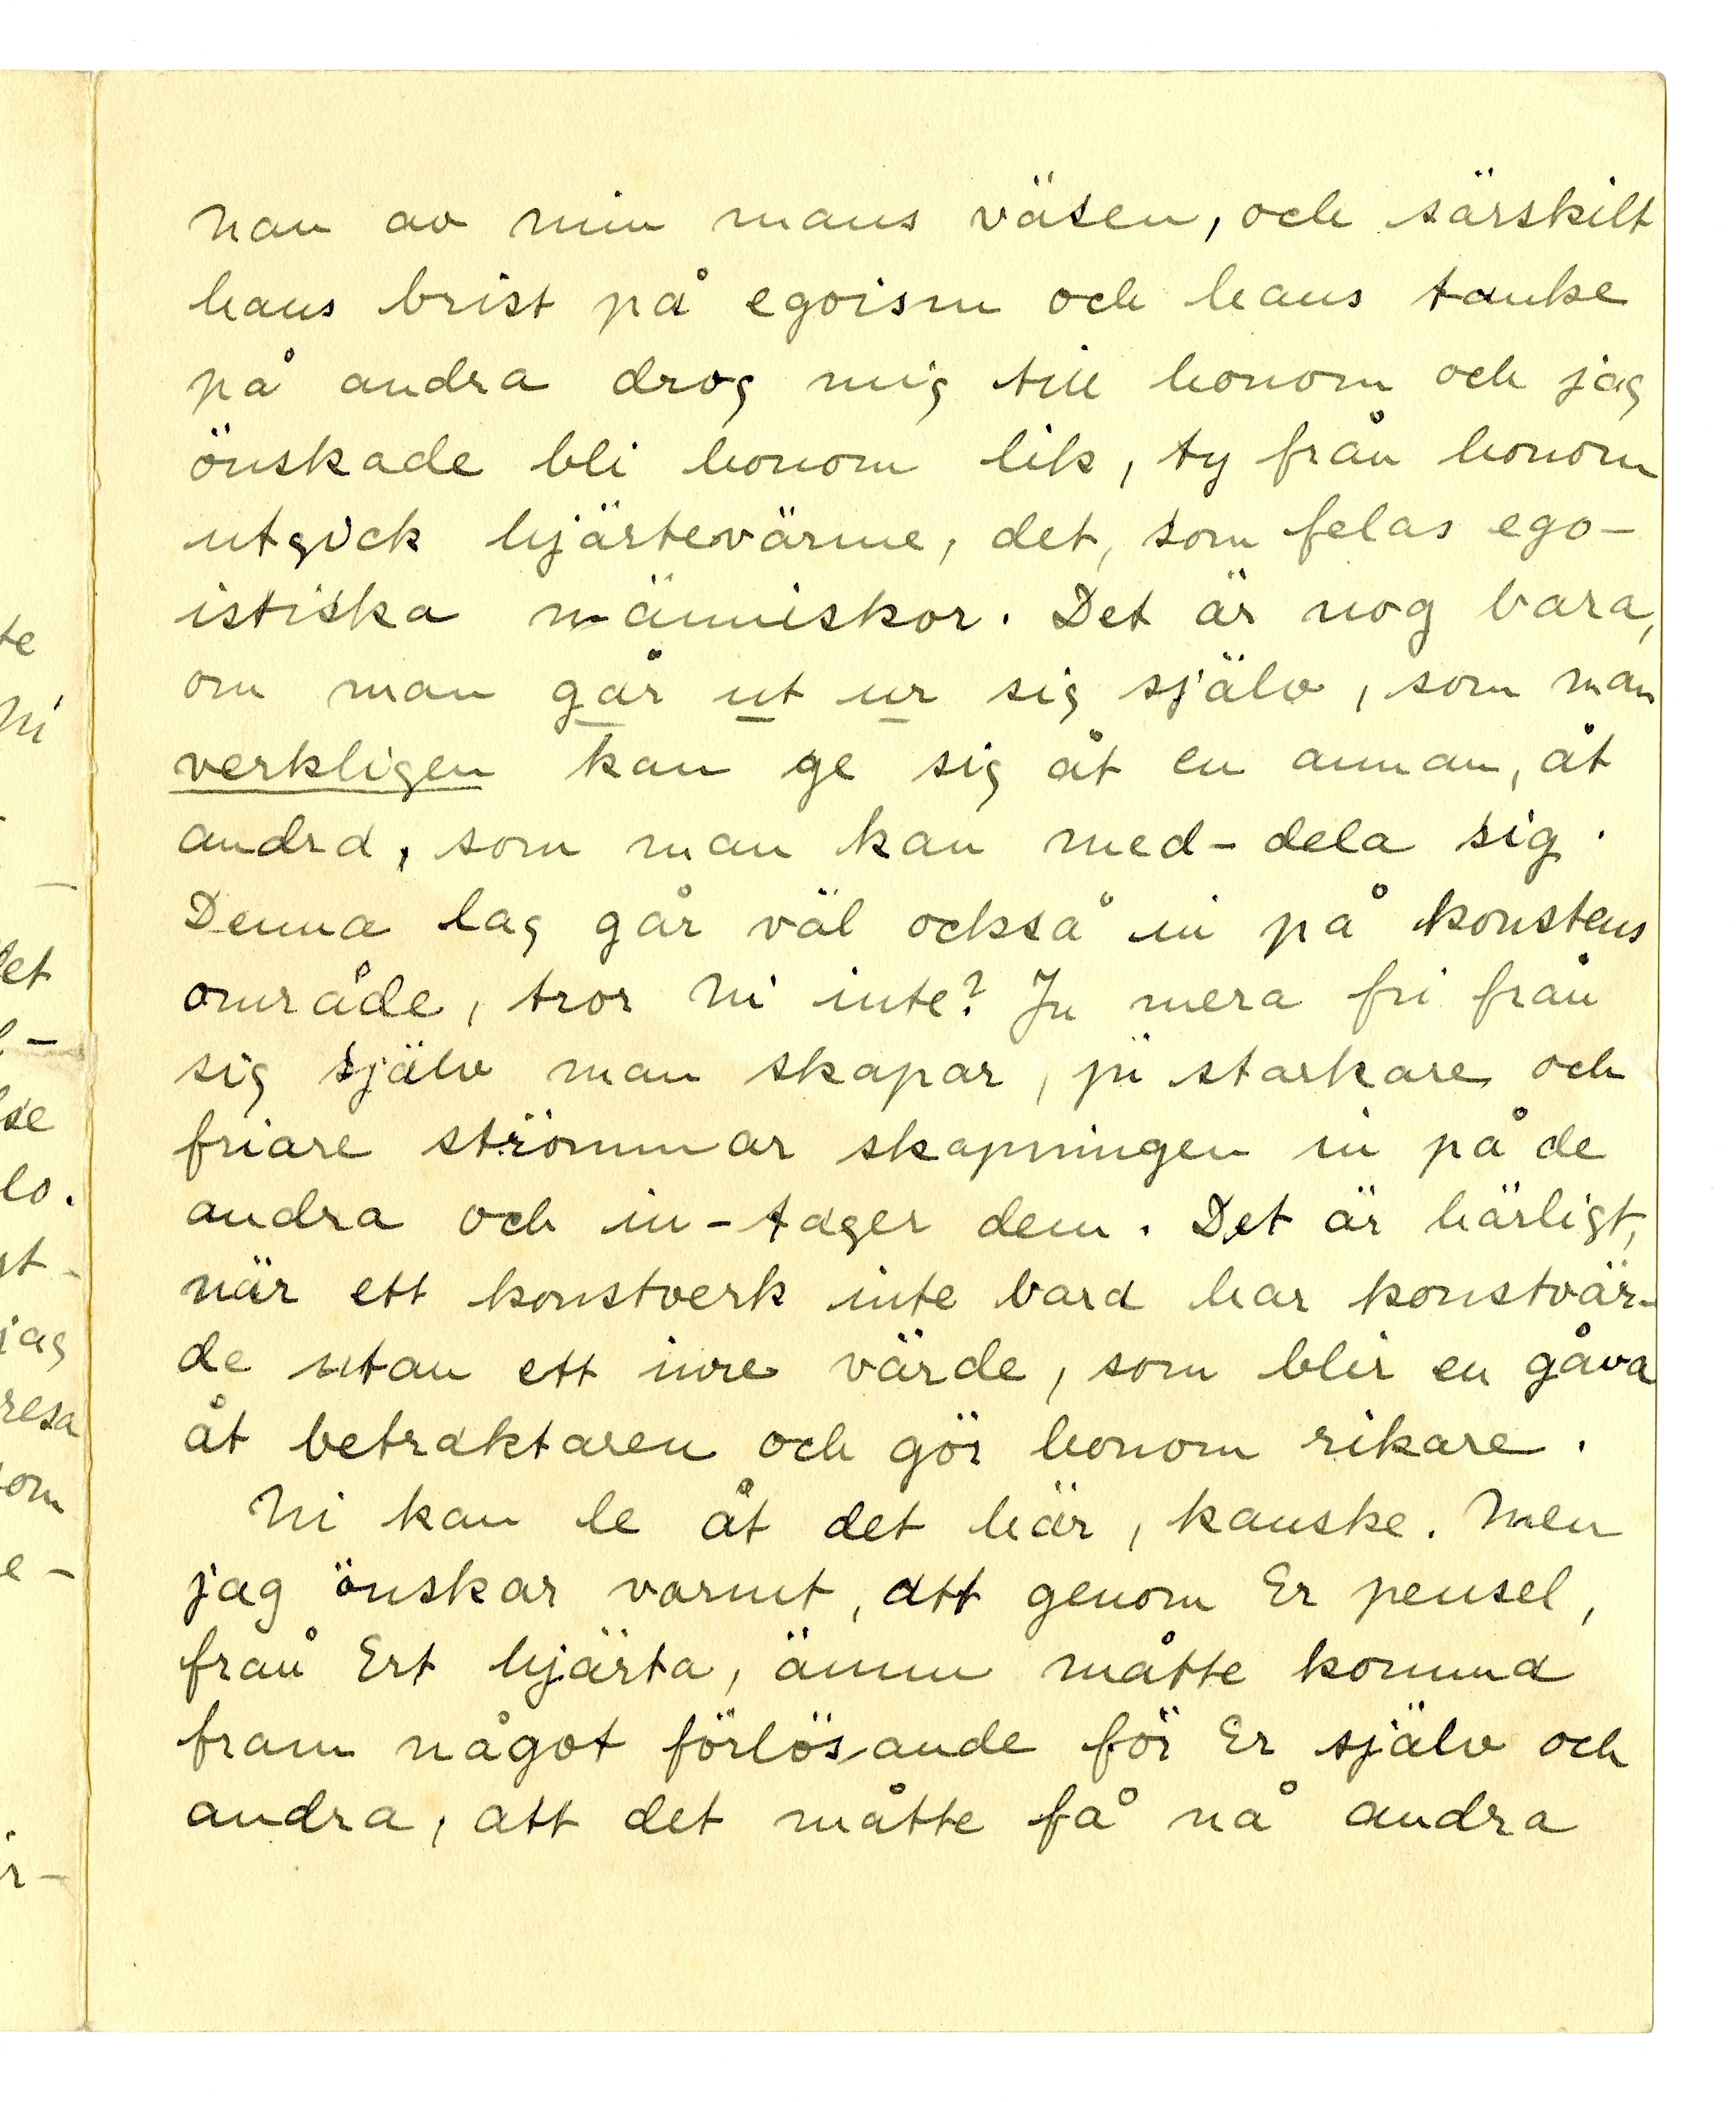 te
Ni
-
-
let
l-
se
lo.
st-
jag
resa
om
e-
r-
nan av min mans väsen, och särskilt
hans brist på egoism och hans tanke
på andra drog mig till honom och jag
önskade bli honom lik, ty från honom
utgick hjärtevärme, det, som felas ego-
istiska människor. Det är nog bara,
om man går ut ur sig själv, som man
verkligen kan ge sig åt en annan, åt
andra, som man kan med-dela sig.
Denna lag går väl också in på konstens
område, tror Ni inte? Ju mera fri från
sig själv man skapar, ju starkare och
friare strömmar skapningen in på de
andra och in-tager dem. Det är härligt,
när ett konstverk inte bara har konstvär-
de utan ett inre värde, som blir en gåva
åt betraktaren och gör honom rikare.
Ni kan le åt det här, kanske. Men
jag önskar varmt, att genom Er pensel,
från Ert hjärta, ännu måtte komma
fram något förlösande för Er själv och
andra, att det måtte få nå andra